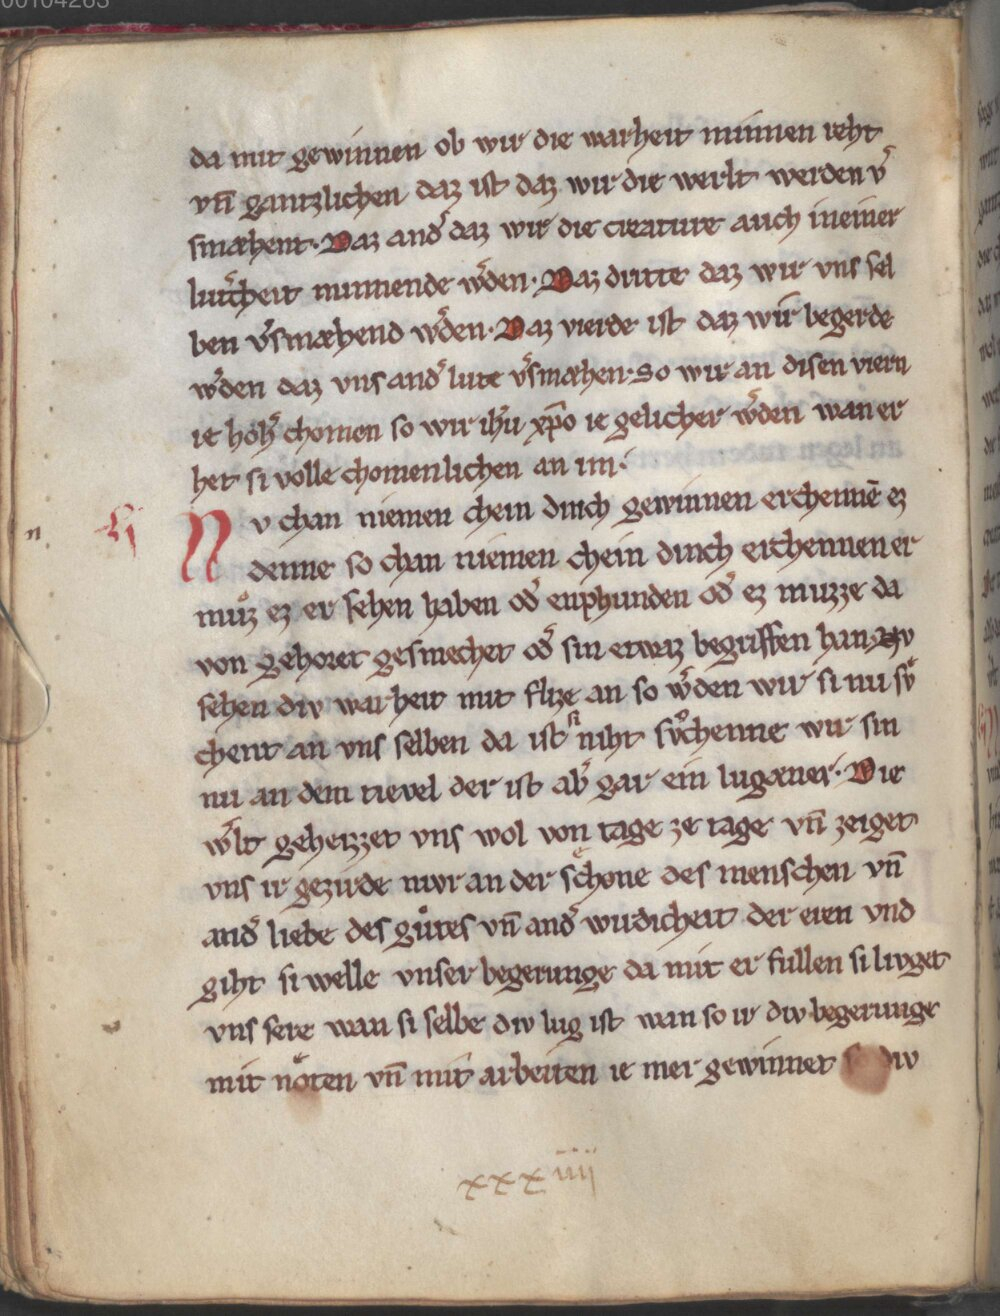 00104263
da mit gewinnen ob wir die warheit minnen reht
vn̄ gantzlichen daz ist daz wir die werlt werden v͛
smæhent. Daz and͛ daz wir die creature auch in einer
lut͛cheit minnende w͛den. Daz dritte daz wir vns sel
ben v͛smæhend w͛den. Daz vierde ist daz wir begerde
w͛den daz vns and͛ lute v͛smæhen. So wir an disen viern
ie hôh͛ chomen so wir ih̄u xp̄o ie gelicher w͛den wan er
het si volle chomenlichen an im.
Nv chan niemen chein dinch gewinnen erchennē ez
denne so chan niemen chein dinch erchennen er
muͦz ez er sehen haben od͛ enphunden od͛ ez muzze da
von gehoret gesmechet od͛ sin etwaz begriffen han. Nv
sehen div warheit mit flize an so w͛den wir si nu suͦ
chent an vns selben da ist si niht suͦchenne wir sin
nu an dem tievel der ist ab͛ gar ein lugæner. Die
w͛lt geheizzet vns wol von tage ze tage vn̄ zeiget
vns ir gezirde nwr an der schoͤne des menschen vn̄
and͛ liebe des guͦtes vn̄ and͛ wirdicheit der eren vnd
giht si welle vnser begerunge da mit er fullen si livget
vns sere wan si selbe div lug ist wan so ir div begerunge
mit noͤten vn̄ mit arbeiten ie mer gewinnet so div
xxxiiij